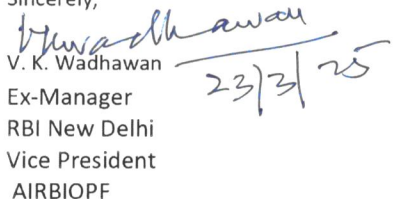 Sincerely,
Vkwadhawan
V. K. Wadhawan
23/3/25
Ex-Manager
RBI New Delhi
Vice President
AIRBIOPF